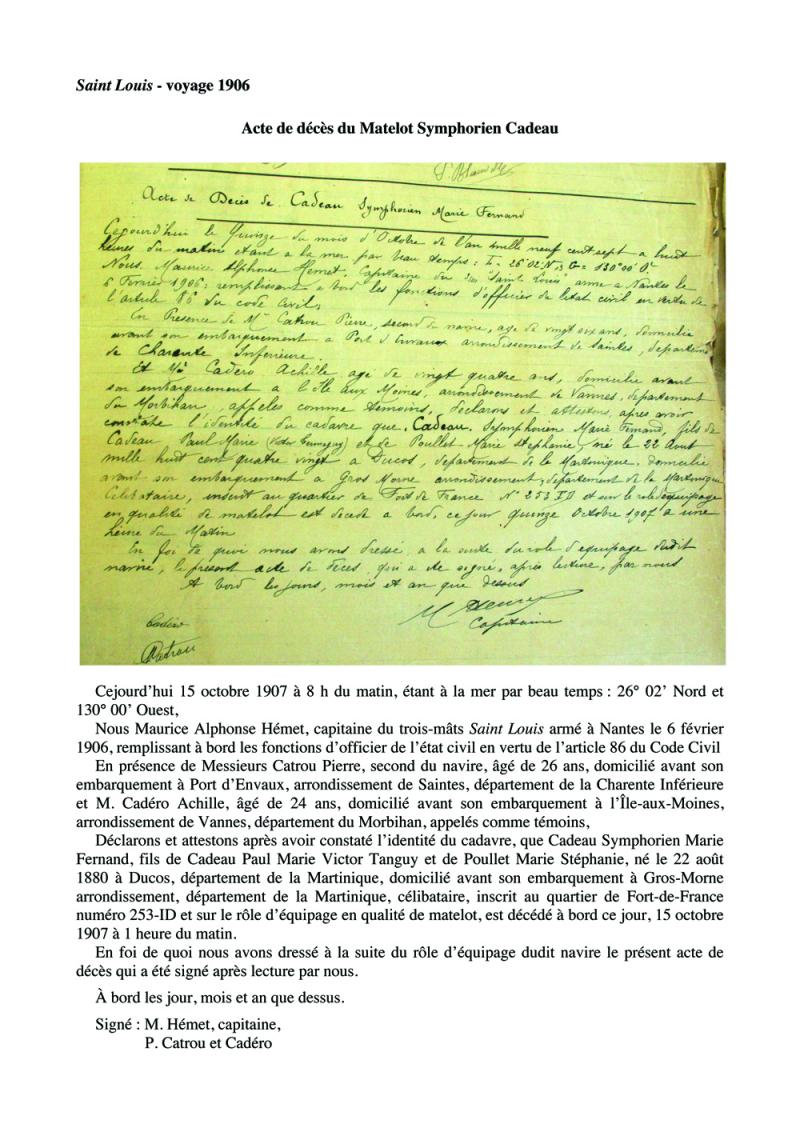 Saint Louis - voyage 1906
Acte de décès du Matelot Symphorien Cadeau
Acte de Décès de Cadeau Symphorien Marie Fernand
Cejourd'hui le Quinze du mois d'Octobre de l'an mille neuf cent sept a huit
heures du matin etant a la mer par beau temps : L = 26°02' N G = 130°00' O.
Nous Maurice Alphonse Hemet, Capitaine du Saint Louis armé a Nantes le
6 Fevrier 1906; remplissant a bord les fonctions d'officier de l'etat civil en vertu de
l'article 86 du code Civil,
En Presence de Mrs Catrou Pierre, second du navire, age de vingt six ans, domicilie
avant son embarquement a Port d'Envaux arrondissement de Saintes, departement
de Charente Inferieure.
Et Mr Cadero Achille age de vingt quatre ans, domicilie avant
son embarquement a l'Ile aux Moines, arrondissement de Vannes, departement
du Morbihan, appeles comme temoins, declarons et attestons, apres avoir
constate l'identité du cadavre que, Cadeau. Symphorien Marie Fernand, fils de
Cadeau Paul Marie (Victor Tanneguy) et de Poullet Marie Stephanie, né le 22 Aout
mille huit cent quatre vingt a Ducos, departement de la Martinique, domicilie
avant son embarquement a Gros Morne arrondissement, departement de la Martinique
Célibataire, inscrit au quartier de Fort de France N° 253 ID et sur le role d'equipage
en qualité de matelot est decede a bord, ce jour quinze Octobre 1907 a une
heure du Matin
En foi de quoi nous avons dressé a la suite du role d'equipage dudit
navire, le présent acte de deces, qui a ete signé, après lecture, par nous
A bord les jours, mois et an que dessus
M Hemet
Capitaine
Cadéro
PCatrou
Cejourd'hui 15 octobre 1907 à 8 h du matin, étant à la mer par beau temps : 26° 02' Nord et
130° 00' Ouest,
Nous Maurice Alphonse Hémet, capitaine du trois-mâts Saint Louis armé à Nantes le 6 février
1906, remplissant à bord les fonctions d'officier de l'état civil en vertu de l'article 86 du Code Civil
En présence de Messieurs Catrou Pierre, second du navire, âgé de 26 ans, domicilié avant son
embarquement à Port d'Envaux, arrondissement de Saintes, département de la Charente Inférieure
et M. Cadéro Achille, âgé de 24 ans, domicilié avant son embarquement à l'Île-aux-Moines,
arrondissement de Vannes, département du Morbihan, appelés comme témoins,
Déclarons et attestons après avoir constaté l'identité du cadavre, que Cadeau Symphorien Marie
Fernand, fils de Cadeau Paul Marie Victor Tanguy et de Poullet Marie Stéphanie, né le 22 août
1880 à Ducos, département de la Martinique, domicilié avant son embarquement à Gros-Morne
arrondissement, département de la Martinique, célibataire, inscrit au quartier de Fort-de-France
numéro 253-ID et sur le rôle d'équipage en qualité de matelot, est décédé à bord ce jour, 15 octobre
1907 à 1 heure du matin.
En foi de quoi nous avons dressé à la suite du rôle d'équipage dudit navire le présent acte de
décès qui a été signé après lecture par nous.
À bord les jour, mois et an que dessus.
Signé : M. Hémet, capitaine,
P. Catrou et Cadéro